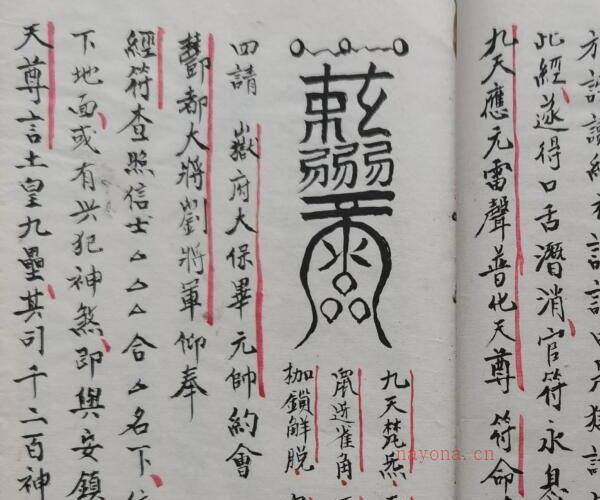 此經遂得口舌潛消官符永息
九天應元雷聲普化天尊 符命
九天
鼠迸雀角
枷鎖解脱
四請 嶽府大保畢元帥約會
酆都大將劉將軍仰奉
經符查照信士△△△合△名下
下地面或有興犯神煞即與安鎮
天尊言土皇九壘其司千二百神
nayona.cn